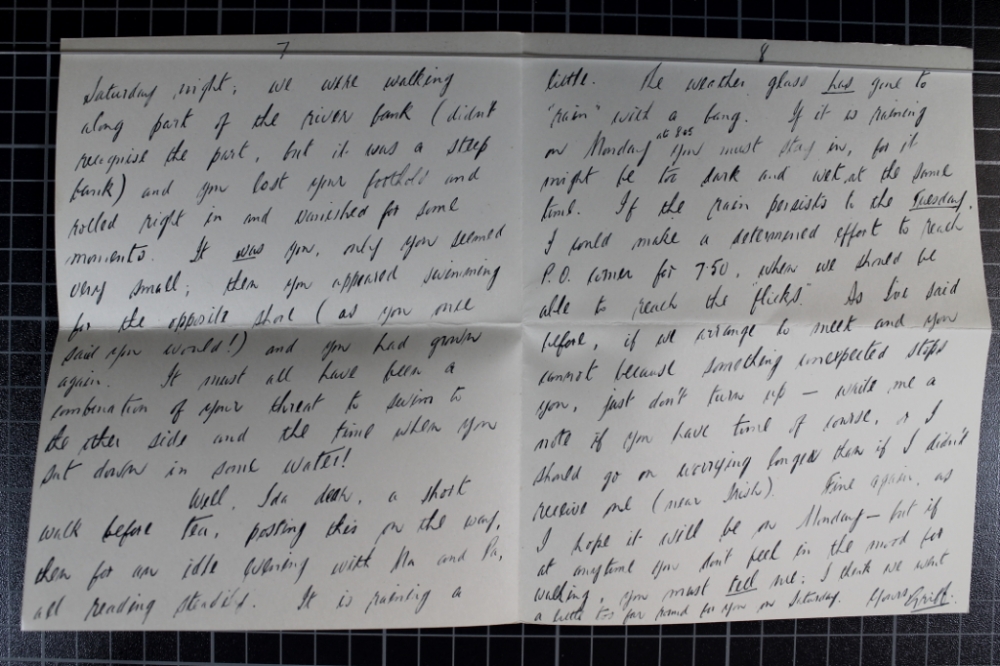 7
Saturday night; we were walking
along part of the river bank (didn't
recognise the part, but it was a steep
bank) and you lost your foothold and
rolled right in and vanished for some
moments. It was you, only you seemed
very small; then you appeared swimming
for the opposite shore (as you once
said you would!) and you had grown
again. It must all have been a
combination of your threat to swim to
the other side and the time when you
sat down in some water!
Well, Ida dear, a short
walk before tea, posting this on the way,
then for an idle evening with Ma and Pa,
all reading steadily. It is raining a
8
little. The weather glass has gone to
"rain" with a bang. If it is raining
on Monday at 8.0 you must stay in, for it
might be too dark and wet at the same
time. If the rain persists to the Tuesday,
I could make a determined effort to reach
P.O. corner for 7.50, when we should be
able to reach the "flicks". As I've said
before, if we arrange to meet and you
cannot because something unexpected stops
you, just don't turn up — write me a
note if you have time of course, or I
should go on worrying longer than if I didn't
receive one (near Irish). Fine again, as
I hope it will be on Monday — but if
at anytime you don't feel in the mood for
walking, you must tell me; I think we went
a little too far round for you on Saturday. Yours Griff.